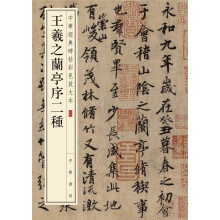 中華經典碑帖彩色放大本
王羲之蘭亭序二種
中華書局
永和九年歲在癸丑暮春之初會
于會稽山陰之蘭亭脩禊事
也羣賢畢至少長咸集此地
有峻領茂林脩竹又有清流激